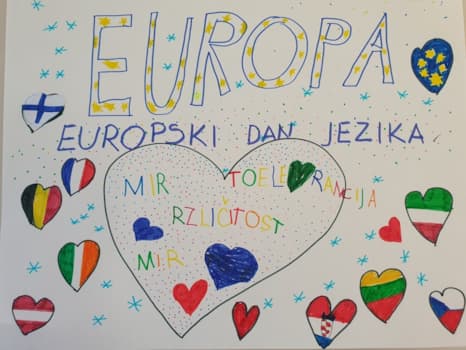 EUROPA
EUROPSKI DAN JEZIKA
MIR TOELERANCIJA
RZLIČITOST
MIR